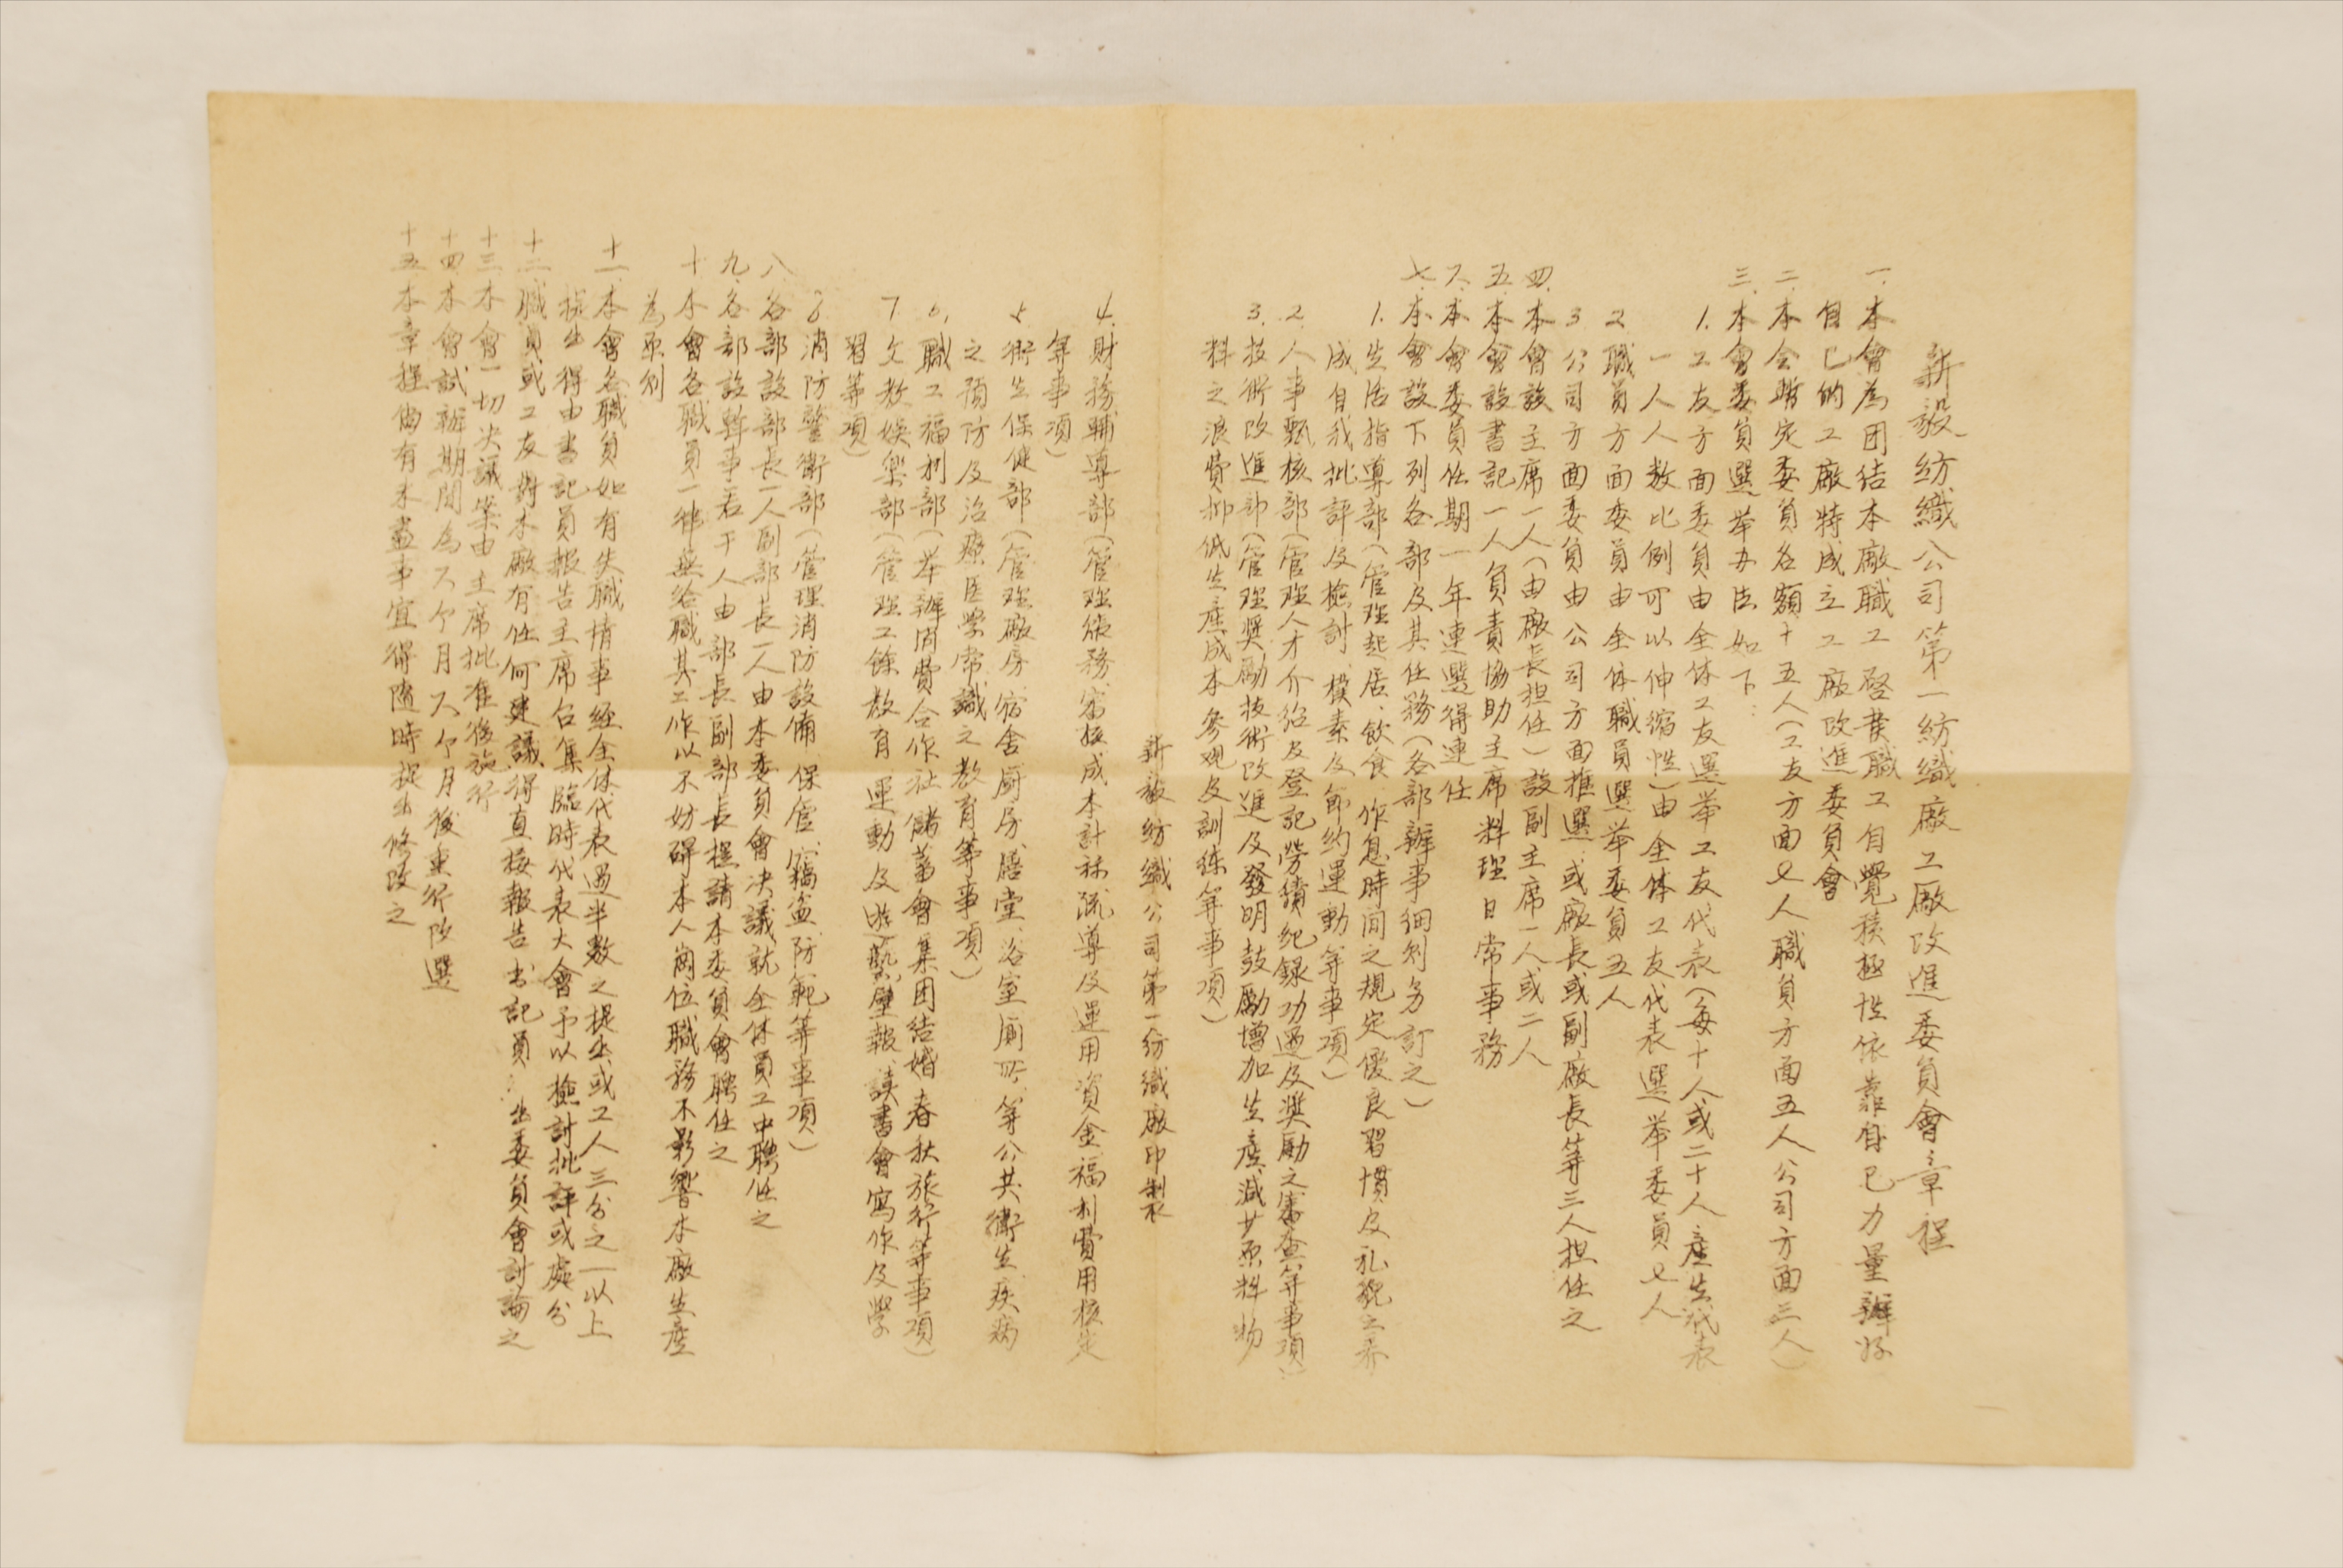 新毅紡織公司第一紡織廠工廠改進委員會章程
一.本會為团结本廠職工啓發職工自覺積極性依靠自己力量辦好
自己的工廠特成立工廠改進委員會
二.本会暂定委員名額十五人(工友方面七人職員方面五人公司方面三人)
三.本會委員選举办法如下：
1.工友方面委員由全体工友選举工友代表(每十人或二十人產生代表
一人人数比例可以伸缩性)由全体工友代表選举委員七人
2.職員方面委員由全体職員選举委員五人
3.公司方面委員由公司方面推選：或廠長或副廠長等三人担任之
四.本會設主席一人(由廠長担任)設副主席一人或二人
五.本會設書記一人負責協助主席料理日常事務
六.本會委員任期一年連選得連任
七.本會設下列各部及其任務(各部辦事细则另訂之)
1.生活指導部(管理起居、飲食、作息時间之規定優良習慣及礼貌之养
成自我批評及檢討、樸素及節约運動等事項)
2.人事甄核部(管理人才介紹及登記勞績纪録功過及獎勵之審查等事項)
3.技術改進部(管理獎勵技術改進及發明鼓勵增加生產、減少原料物
料之浪費抑低生產成本參观及訓练等事項)
新毅紡織公司第一紡織廠印製
4.財務輔導部(管理债務、審核成本計秝疏導及運用資金福利費用核定
等事項)
5.衛生保健部(管理廠房、宿舍、厨房、膳堂、浴室、厠所、等公共衛生疾病
之預防及治療医學常識之教育等事項)
6.職工福利部(举辦消費合作社儲蓄會集团结婚春秋旅行等事項)
7.文教娛樂部(管理工餘教育運動及遊藝壁報讀書會寫作及學
習等事項)
8.消防警衛部(管理消防設備保管竊盗防範等事項)
八.各部設部長一人副部長一人由本委員會决議就全体員工中聘任之
九.各部設幹事若干人由部長副部長提請本委員會聘任之
十.本會各職員一律無给職其工作以不妨碍本人崗位職務不影響本廠生產
為原则
十一.本會各職員如有失職情事经全体代表過半数之提出或工人三分之一以上
提出得由書記員報告主席召集臨時代表大會予以檢討批評或處分
十二.職員或工友對本廠有任何建議得直接報告书記員提出委員會討論之
十三.本會一切决議案由主席批准後施行
十四.本會試辦期間為六个月六个月後重行改選
十五.本章程倘有未盡事宜得隨時提出修改之